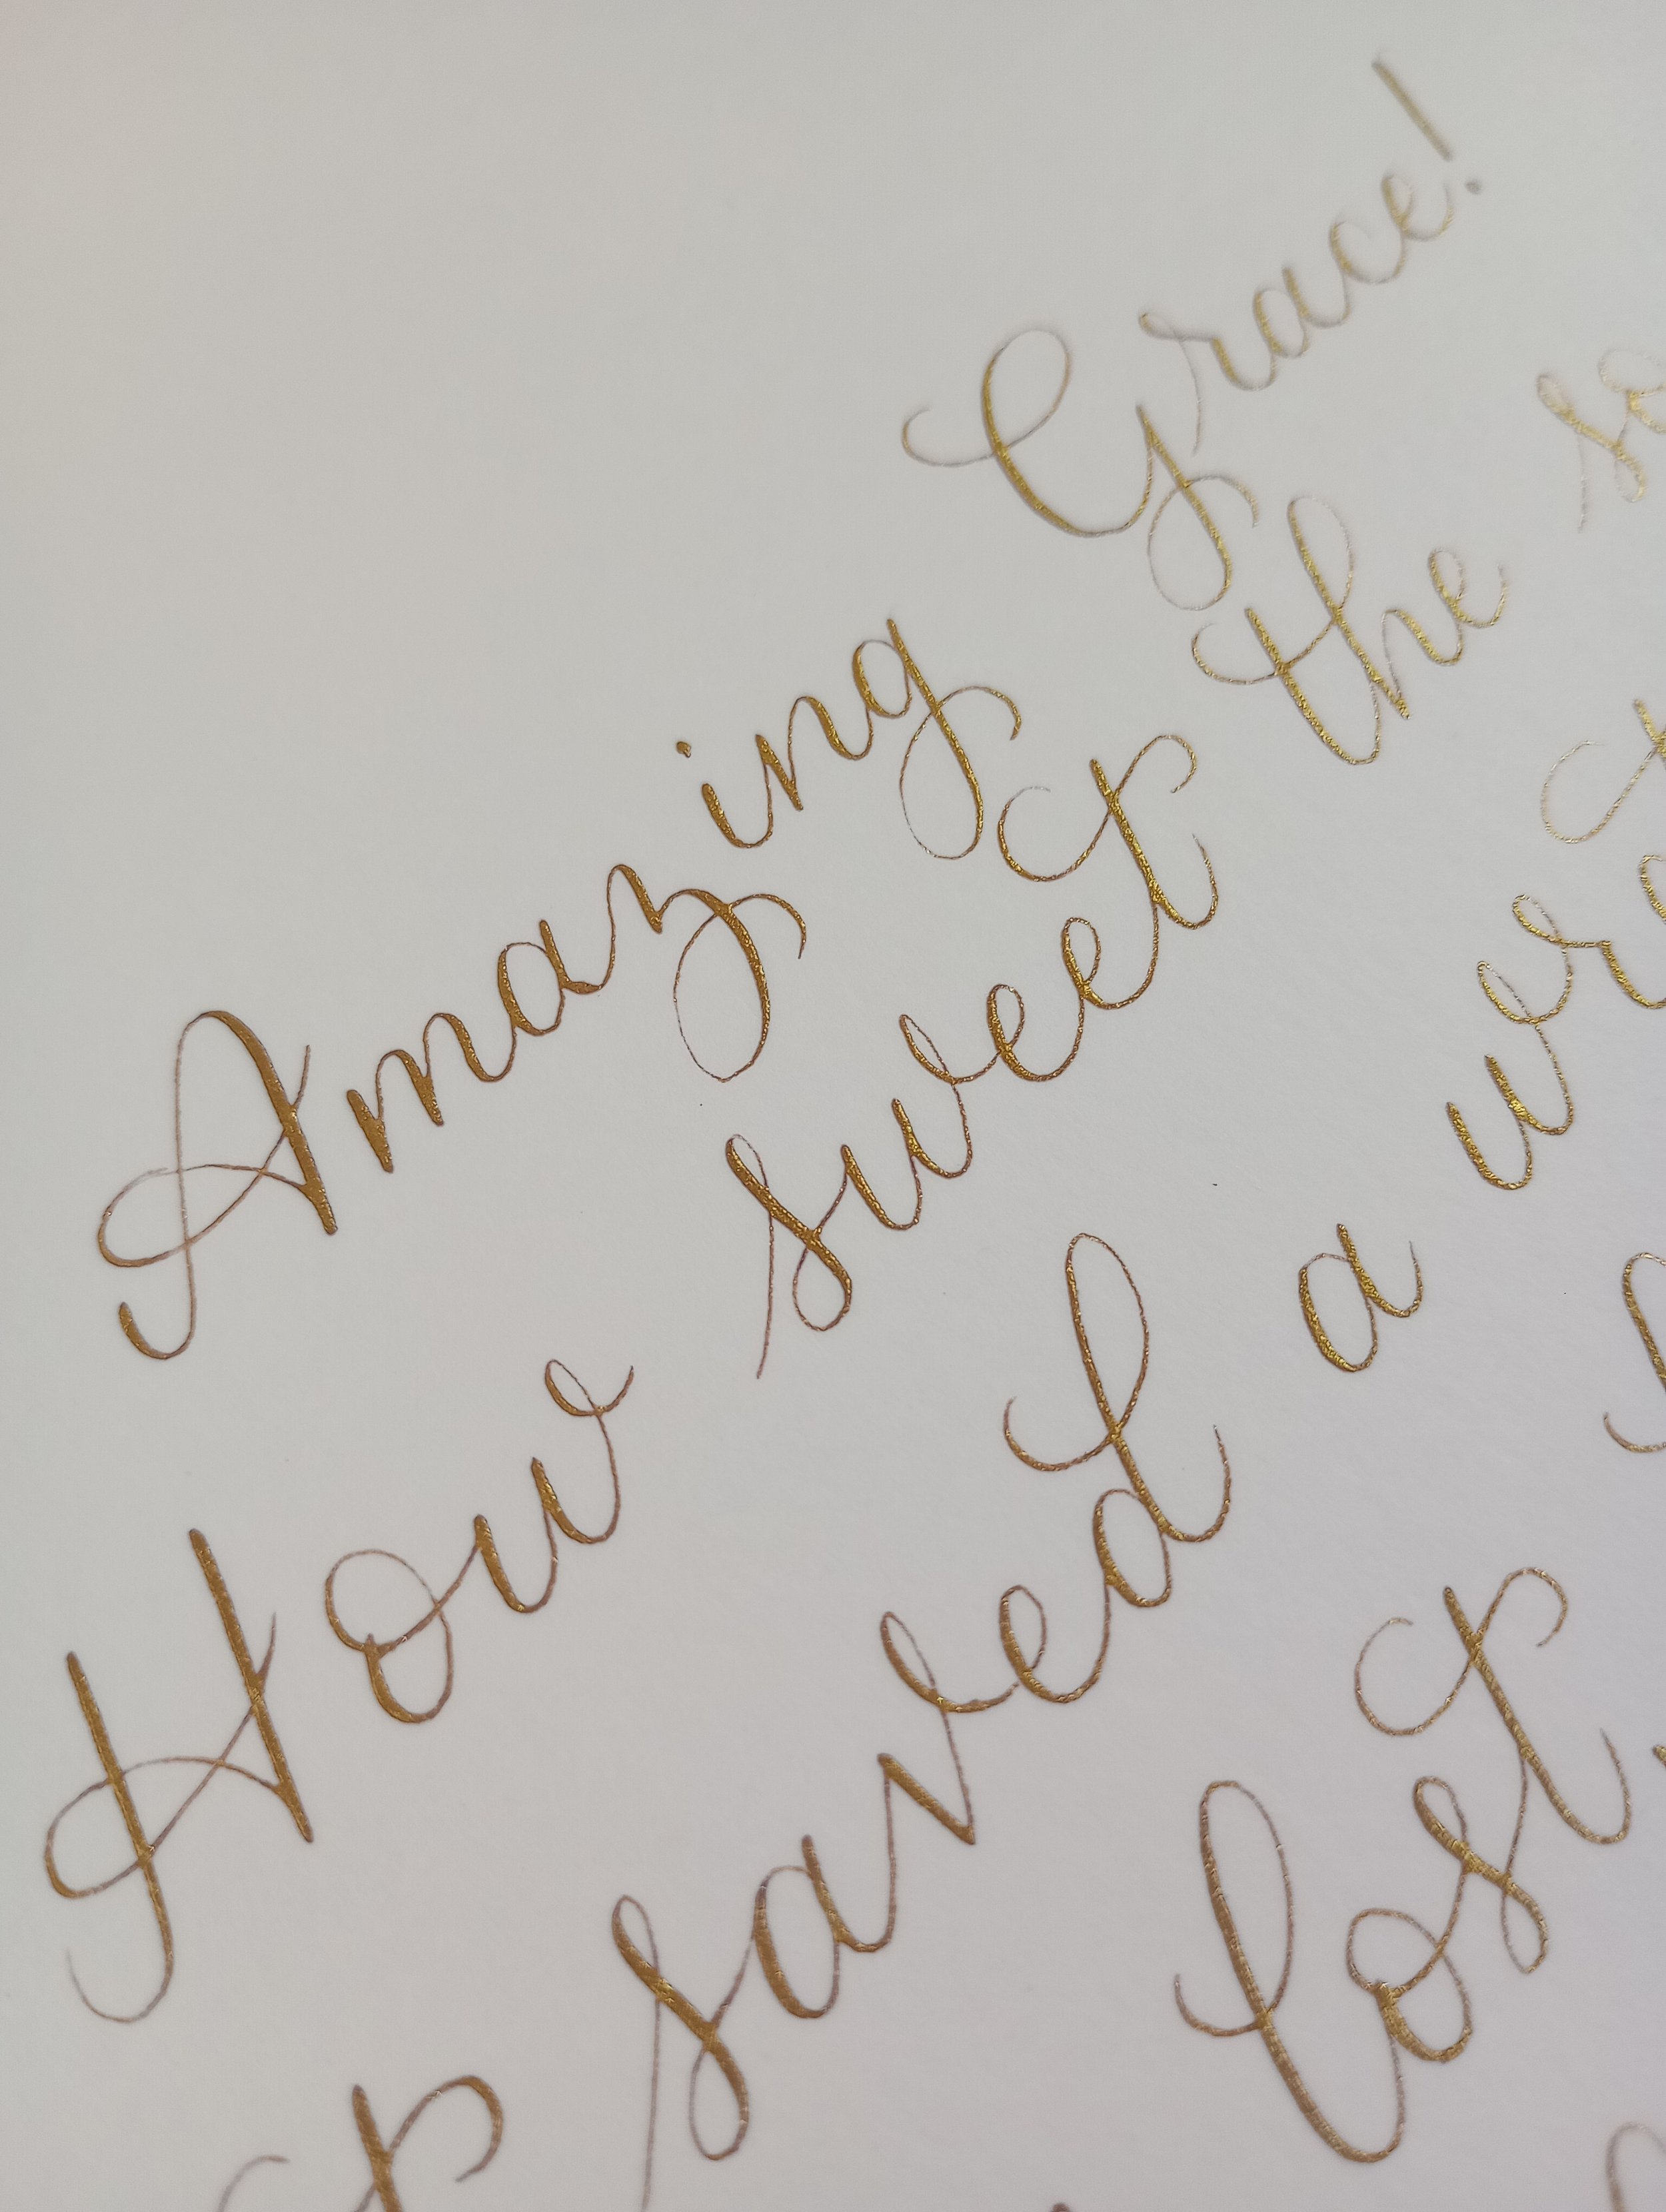 Amazing Grace!
How sweet the so
saved a wre
lost